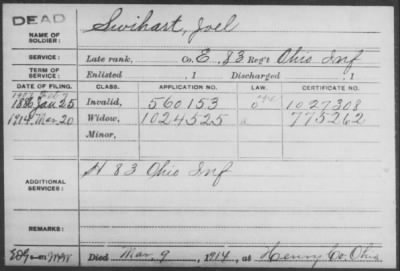 DEAD
NAME OF SOLDIER: Swihart, Joel
SERVICE: Late rank, Co. E, 83 Reg't Ohio Inf
TERM OF SERVICE: Enlisted , 1 Discharged , 1
DATE OF FILING. CLASS. APPLICATION NO. LAW. CERTIFICATE NO.
1886 Jan 25 Invalid, 560153 1027308
1914 Mar 20 Widow, 1024525 775262
Minor,
ADDITIONAL SERVICES: H 83 Ohio Inf
REMARKS:
Died Mar. 9, 1914, at Henry Co. Ohio